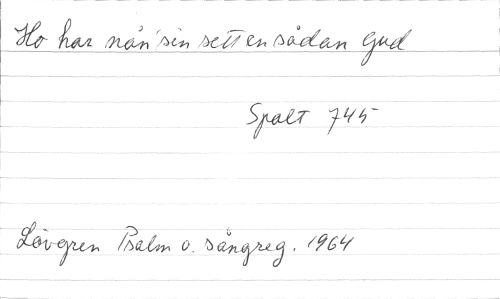 Ho har nån'sin sett en sådan Gud
Spalt 745
Lövgren Psalm o. sångreg. 1964